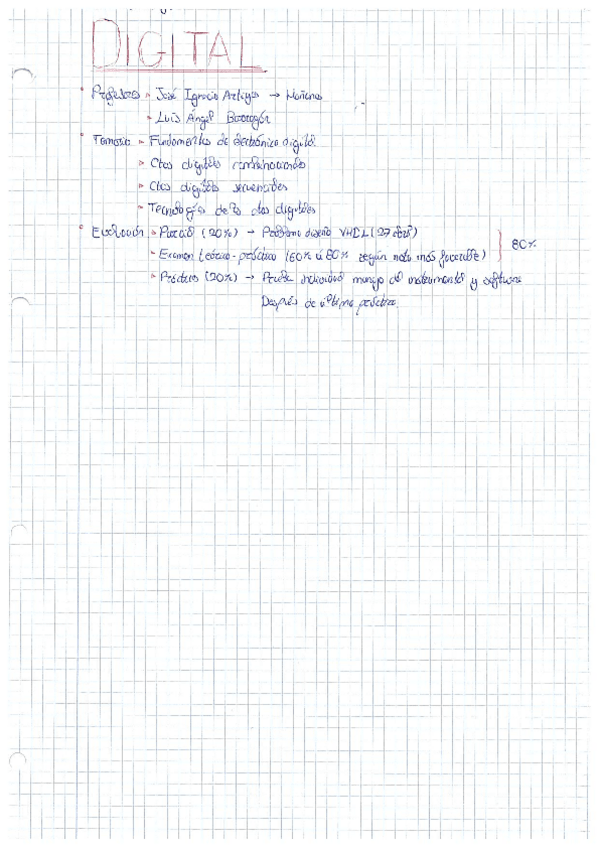 DIGITAL
Profesores José Ignacio Artigas → Mañanas
Luis Ángel Barragán
Temario Fundamentos de electrónica digital
Ctos digitales combinacionales
Ctos digitales secuenciales
Tecnología de los ctos digitales
Evaluación Parcial (20%) → Problema diseño VHDL (27 abril)
Examen teórico-práctico (60% ú 80% según nota más favorable) } 80%
Prácticas (20%) → Prueba individual manejo del instrumental y software
Después de última práctica.